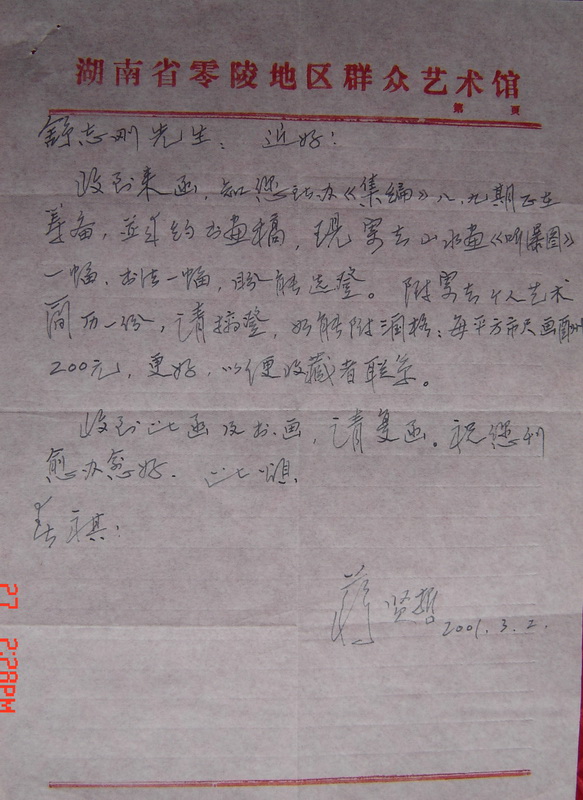 湖南省零陵地区群众艺术馆
第 页
舒志刚先生: 近好!
收到来函,知您主办《集编》八、九期正在
筹备,并约书画稿,现寄去山水画《听瀑图》
一幅、书法一幅,盼能选登。附寄去个人艺术
简历一份,请摘登,如能附润格:每平方市尺画
200元,更好,以便收藏者联系。
收到此函及书画,请复函。祝您刊
愈办愈好. 此颂
春祺!
蒋贤哲 2001.3.2.
27 2:28PM